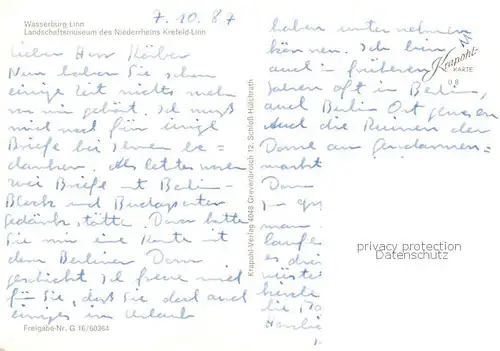 Wasserburg Linn
Landschaftsmuseum des Niederrheins Krefeld-Linn
7.10.87
Lieber Herr Körber
Nun haben Sie schon
einige Zeit nichts mehr
von mir gehört. Ich muß
mich noch für einige
Briefe bei Ihnen be-
danken. Als letztes waren
zwei Briefe mit Berlin-
Block und Budapester
gedänkstätte. Dann hatten
Sie mir eine Karte mit
dem Berliner Dom
geschickt Ich freue mich
für Sie, daß Sie doch auch
einiges im Urlaub
Freigabe-Nr. G 16/60364
Krapohl-Verlag 4048 Grevenbroich 12, Schloß Hülchrath
haben unternehmen
können. Ich bin
auch in früheren
Jahren oft in Berlin,
auch Berlin Ost gewesen
Auch die Ruinen der
Dome am Gendarmen-
markt
Dom
man
laufe
es dre
Krapohl-
KARTE
privacy protection
Oldthing